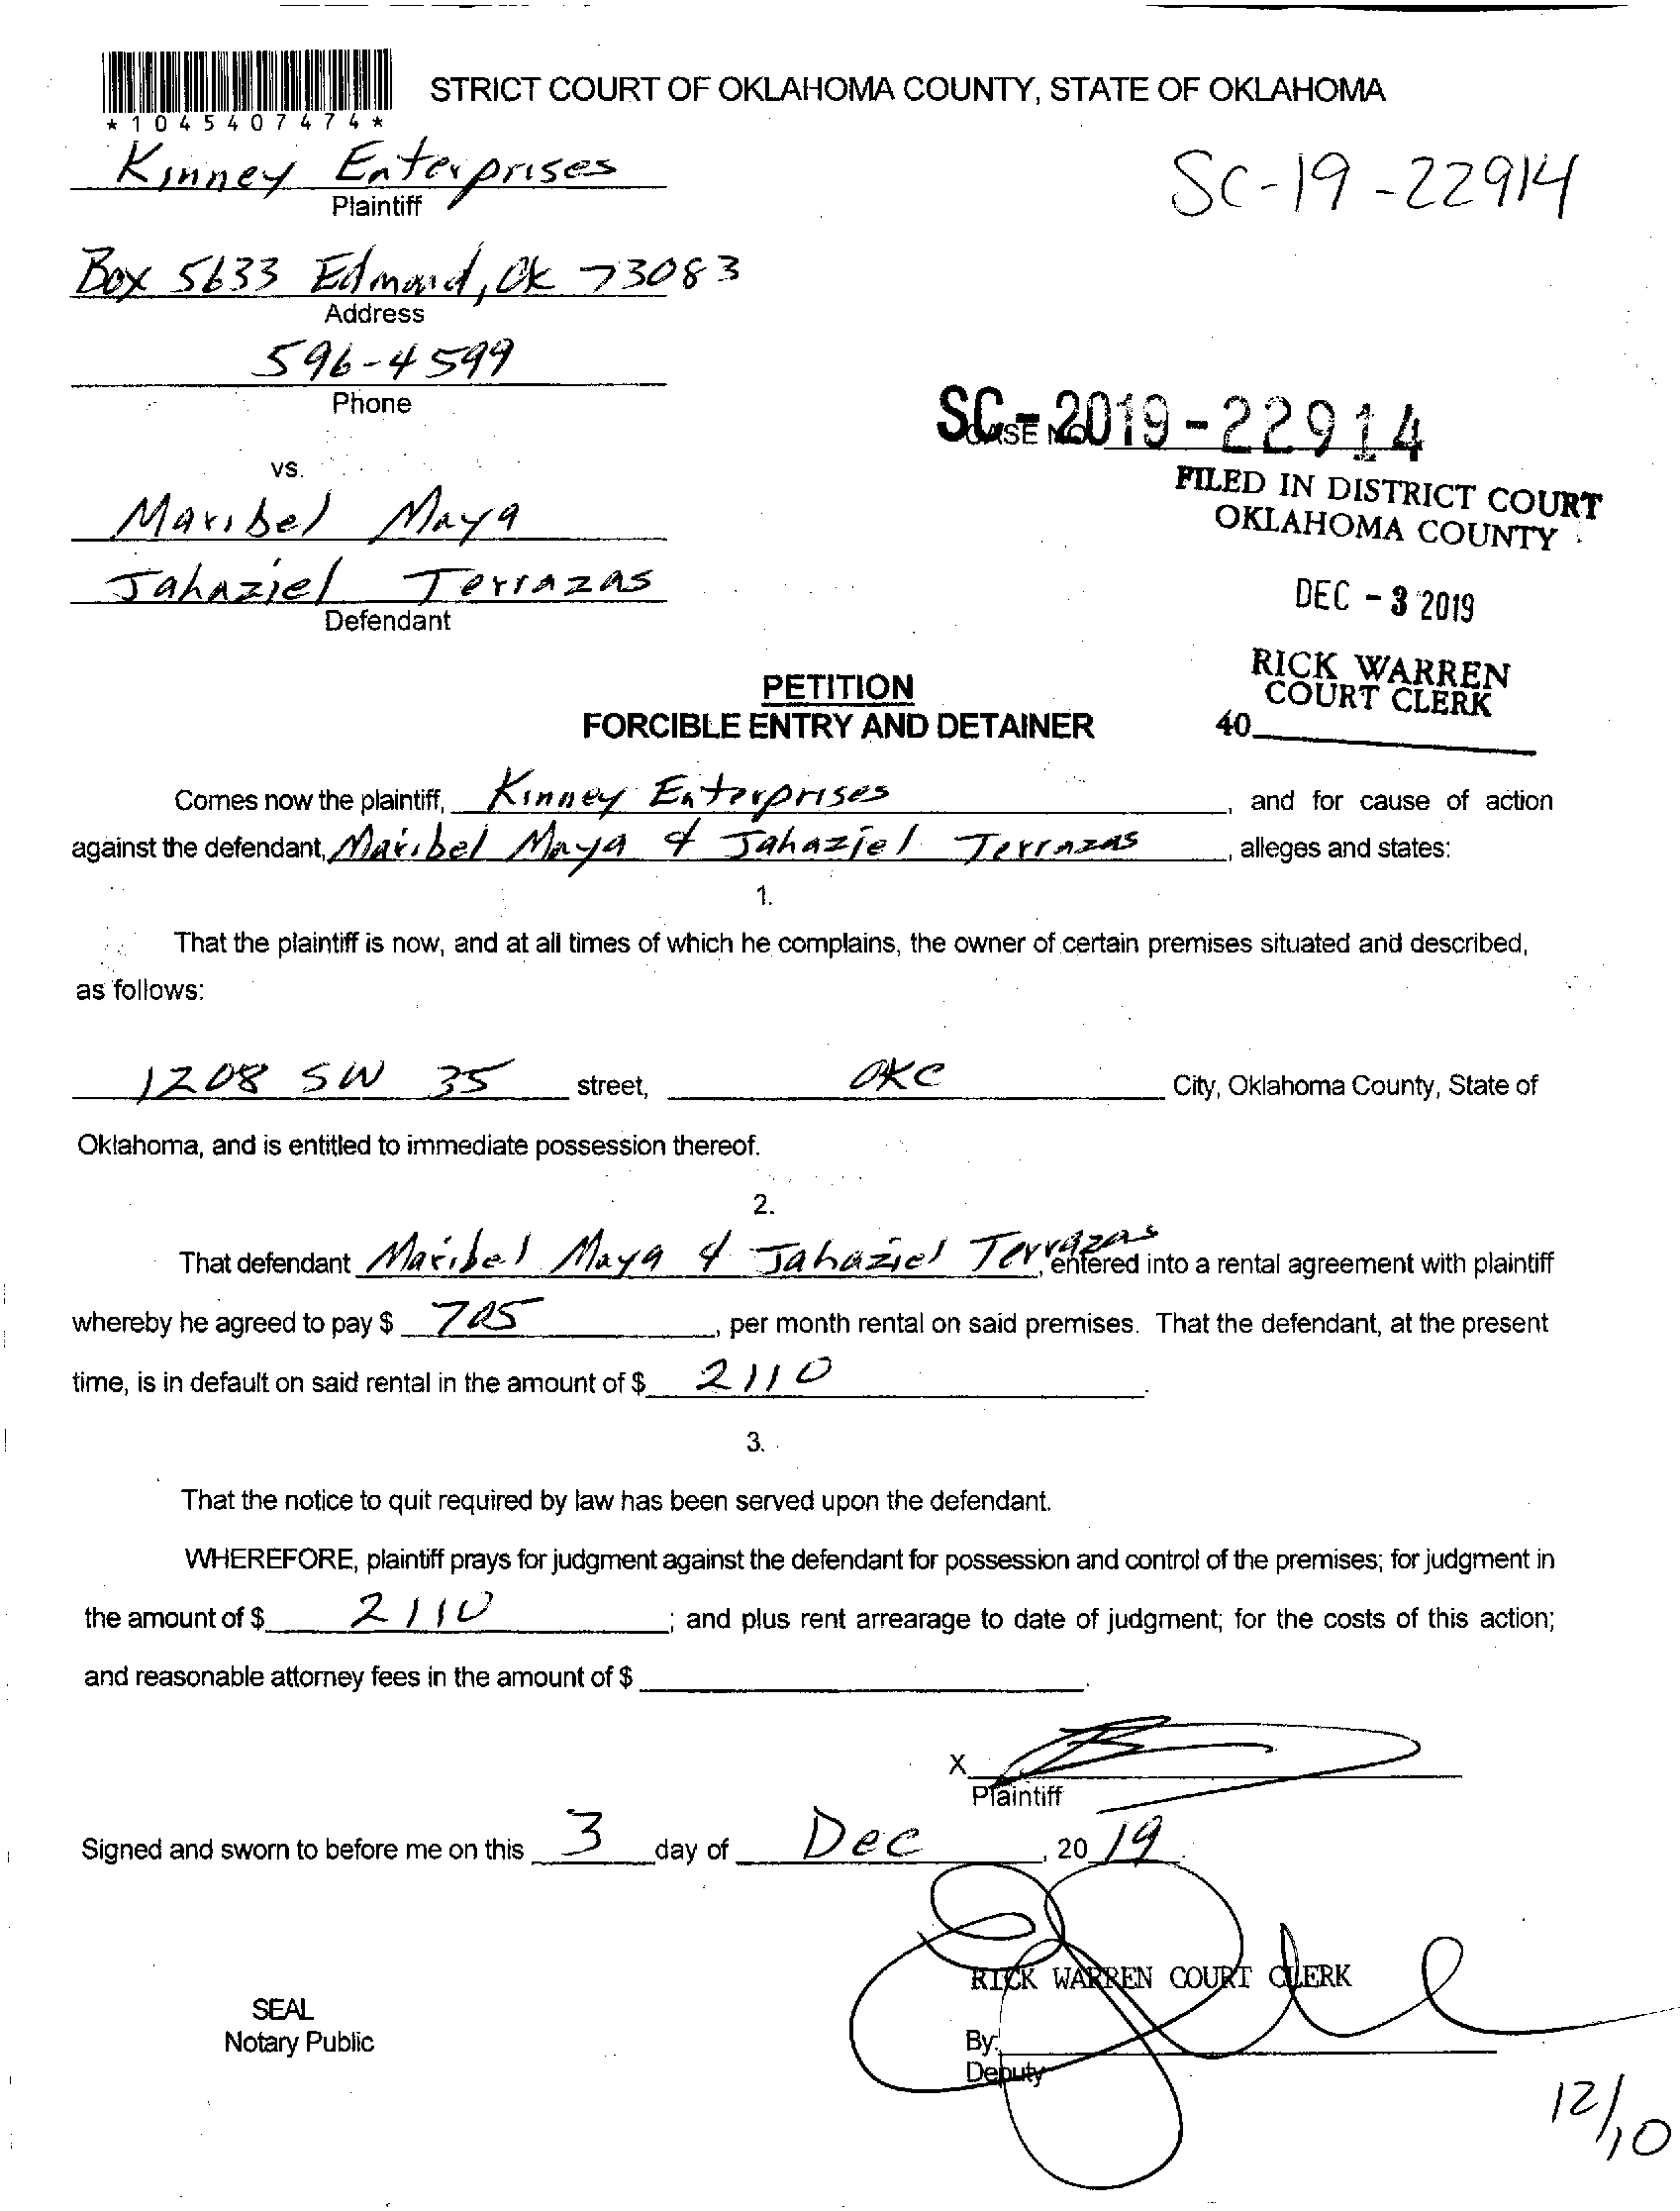 STRICT COURT OF OKLAHOMA COUNTY, STATE OF OKLAHOMA
*1045407474*
Kinney Enterprises
Plaintiff
SC-19-22914
Box 5633 Edmond, Ok 73083
Address
596-4599
Phone
SC-2019-22914
CASE NO
FILED IN DISTRICT COURT
OKLAHOMA COUNTY
vs.
Maribel Maya
Jahaziel Terrazas
Defendant
DEC - 3 2019
RICK WARREN
COURT CLERK
40
PETITION
FORCIBLE ENTRY AND DETAINER
Comes now the plaintiff, Kinney Enterprises, and for cause of action
against the defendant, Maribel Maya & Jahaziel Terrazas, alleges and states:
1.
That the plaintiff is now, and at all times of which he complains, the owner of certain premises situated and described,
as follows:
1208 SW 35 street, OKC City, Oklahoma County, State of
Oklahoma, and is entitled to immediate possession thereof.
2.
That defendant Maribel Maya & Jahaziel Terrazas, entered into a rental agreement with plaintiff
whereby he agreed to pay $ , per month rental on said premises. That the defendant, at the present
time, is in default on said rental in the amount of $ 2110.
3.
That the notice to quit required by law has been served upon the defendant.
WHEREFORE, plaintiff prays for judgment against the defendant for possession and control of the premises; for judgment in
the amount of $ 2110; and plus rent arrearage to date of judgment; for the costs of this action;
and reasonable attorney fees in the amount of $ .
X
Plaintiff
Signed and sworn to before me on this 3 day of Dec, 20 19.
RICK WARREN COURT CLERK
SEAL
Notary Public
By:
Deputy
12/10